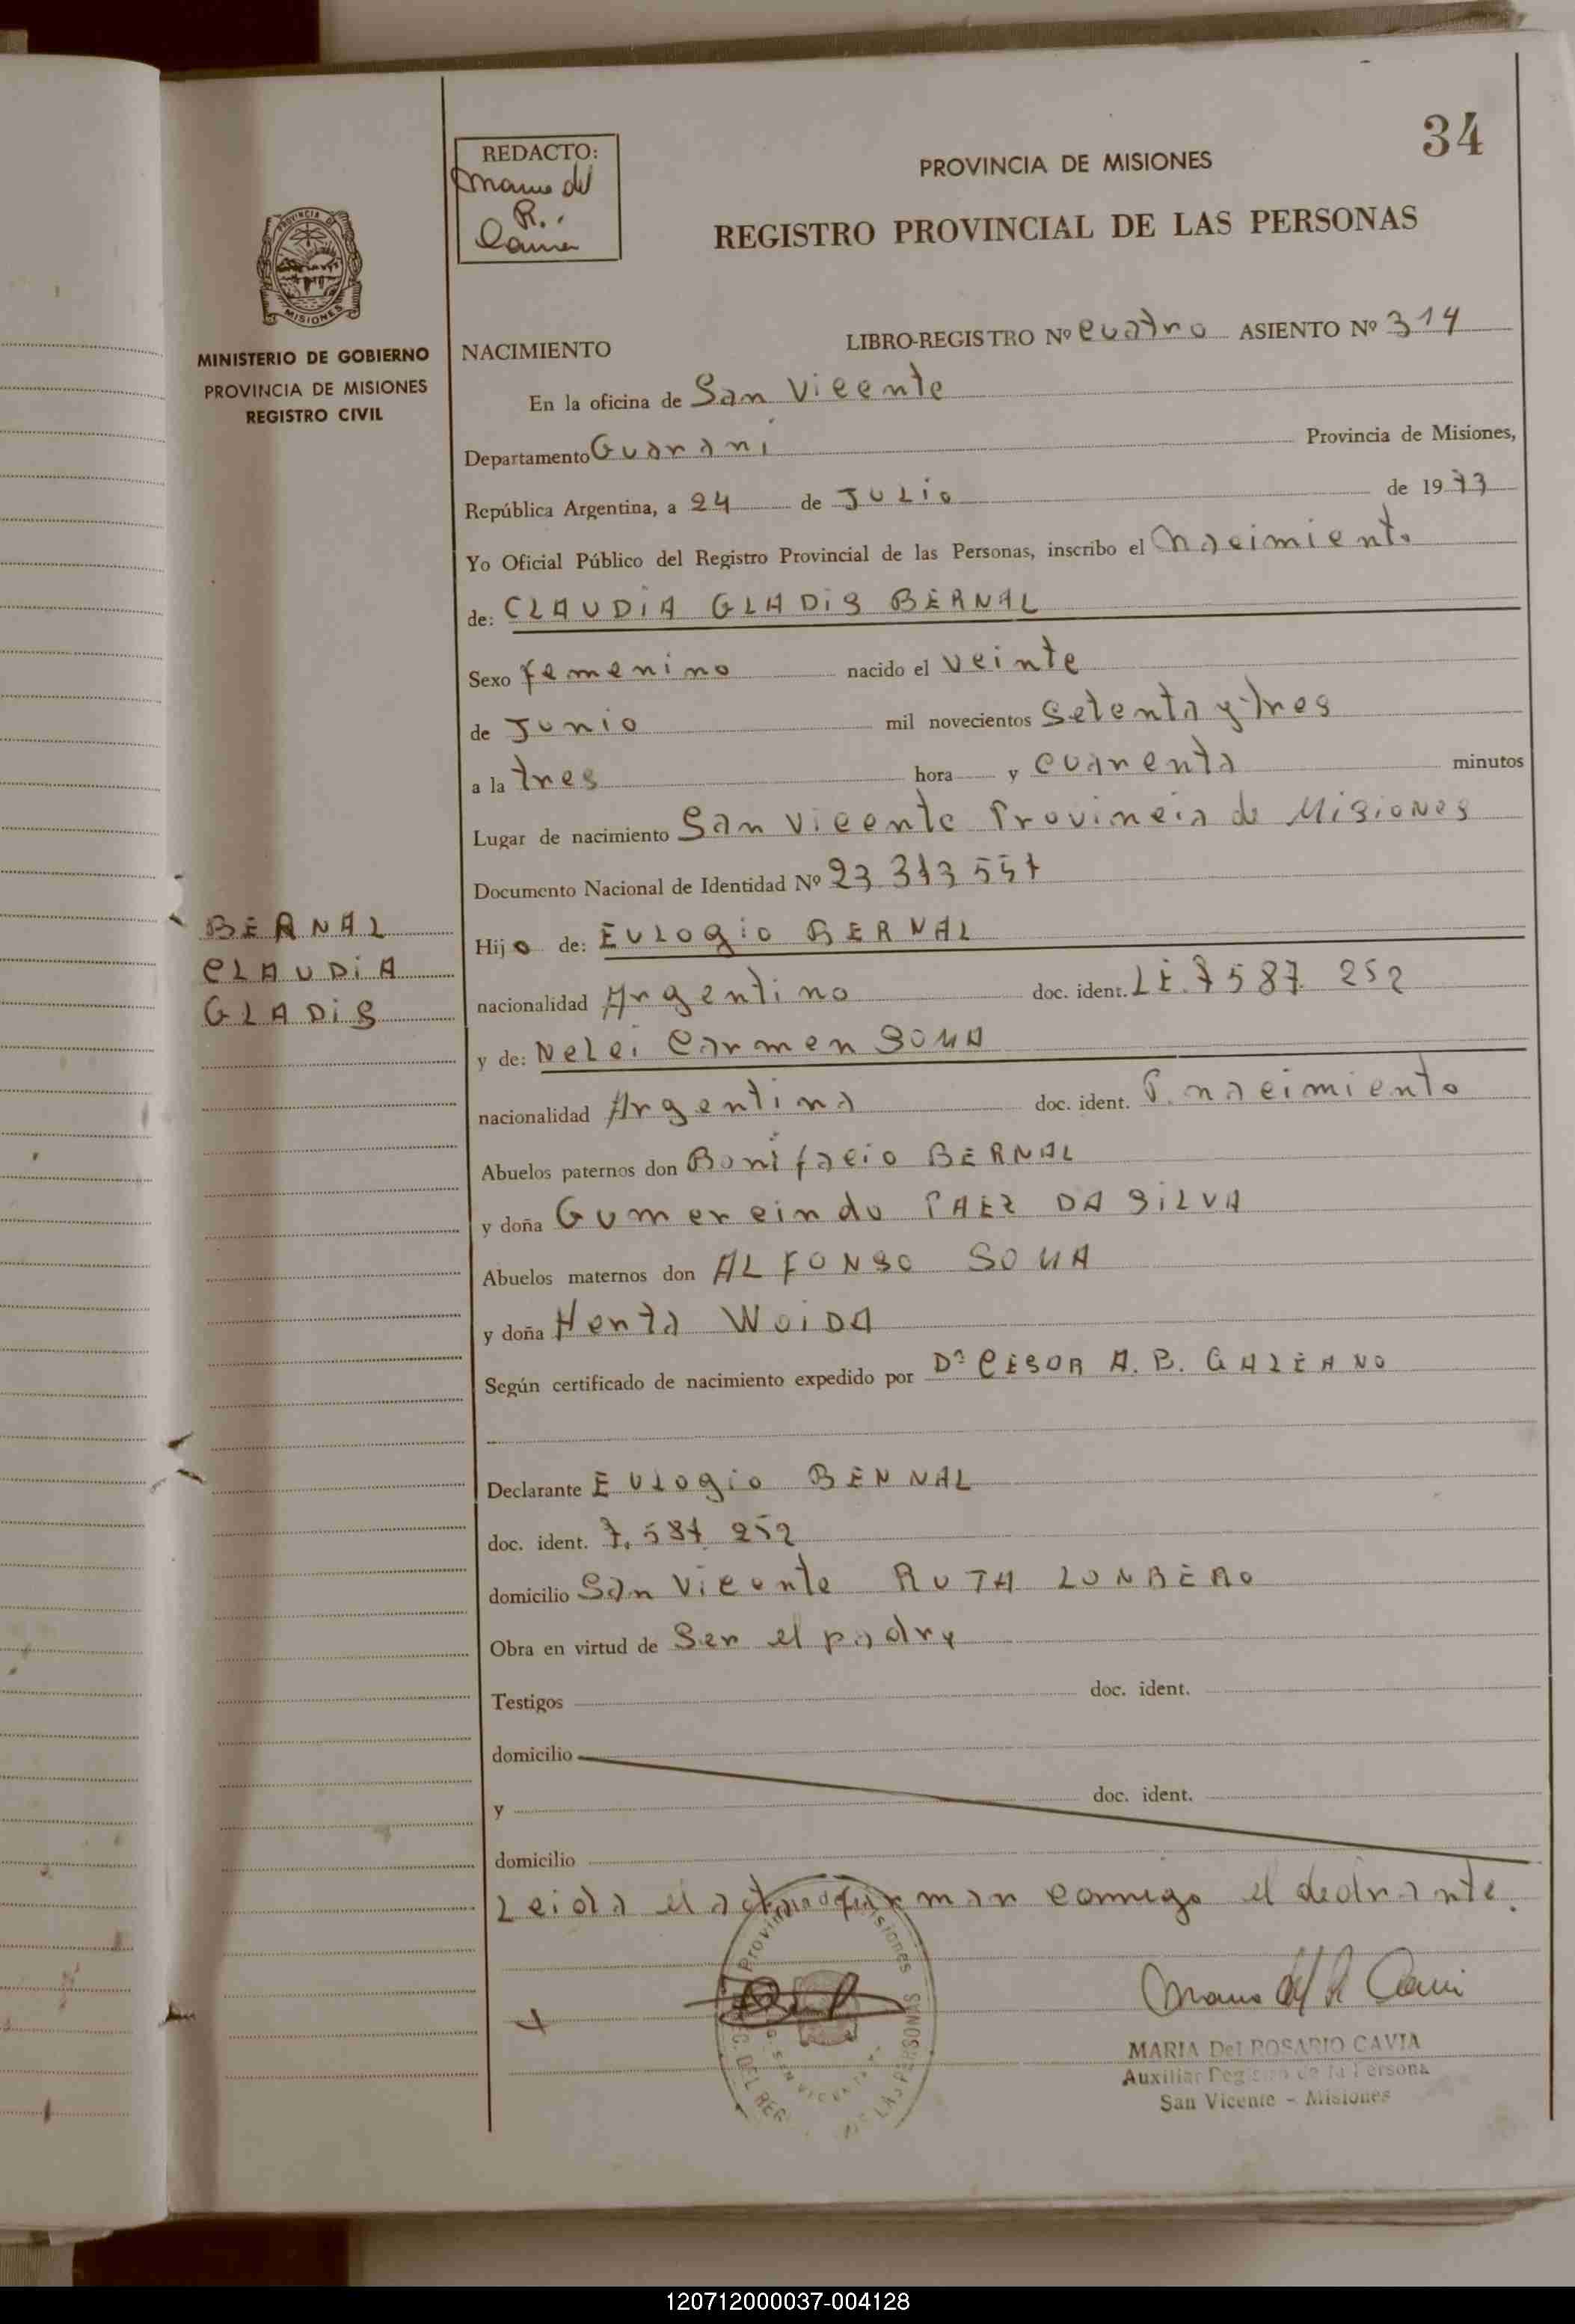 34
REDACTO:
PROVINCIA DE MISIONES
REGISTRO PROVINCIAL DE LAS PERSONAS
MISIONES
MINISTERIO DE GOBIERNO
PROVINCIA DE MISIONES
REGISTRO CIVIL
BERNAL
CLAUDIA
GLADIS
NACIMIENTO LIBRO-REGISTRO Nº cuatro ASIENTO Nº 314
En la oficina de San Vicente
Departamento Guarani Provincia de Misiones,
República Argentina, a 24 de JULio de 1973
Yo Oficial Público del Registro Provincial de las Personas, inscribo el nacimiento
de: CLAUDIA GLADIS BERNAL
Sexo femenino nacido el veinte
de Junio mil novecientos Setenta y tres
a la tres hora y cuarenta minutos
Lugar de nacimiento San Vicente Provincia de Misiones
Documento Nacional de Identidad Nº 23.373.557
Hijo de: EULOGIO BERNAL
nacionalidad Argentino doc. ident. LE. 7587 252
y de: Carmen
nacionalidad Argentina doc. ident. P. nacimiento
Abuelos paternos don Bonifacio BERNAL
y doña Gumercinda PAEZ DA SILVA
Abuelos maternos don ALFONSO
y doña WOIDA
Según certificado de nacimiento expedido por A. B. GALEANO
Declarante EULOGIO BERNAL
doc. ident. 7.587.252
domicilio San Vicente RUTA
Obra en virtud de Ser el padre
Testigos doc. ident.
domicilio
y doc. ident.
domicilio
Leida el acta firman conmigo el declarante.
MARIA Del ROSARIO CAVIA
Auxiliar Registro de la Persona
San Vicente - Misiones
120712000037-004128